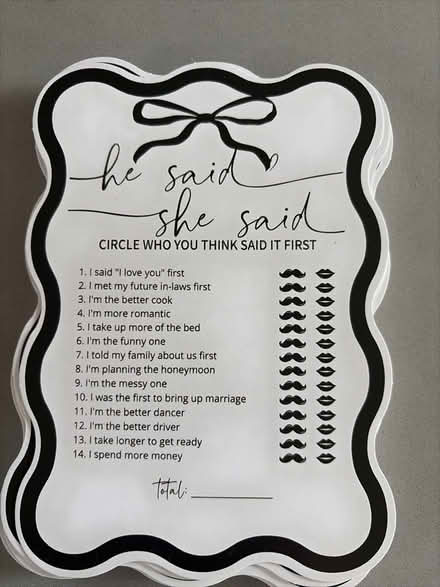 he said
she said
CIRCLE WHO YOU THINK SAID IT FIRST
1. I said "I love you" first
2. I met my future in-laws first
3. I'm the better cook
4. I'm more romantic
5. I take up more of the bed
6. I'm the funny one
7. I told my family about us first
8. I'm planning the honeymoon
9. I'm the messy one
10. I was the first to bring up marriage
11. I'm the better dancer
12. I'm the better driver
13. I take longer to get ready
14. I spend more money
total: